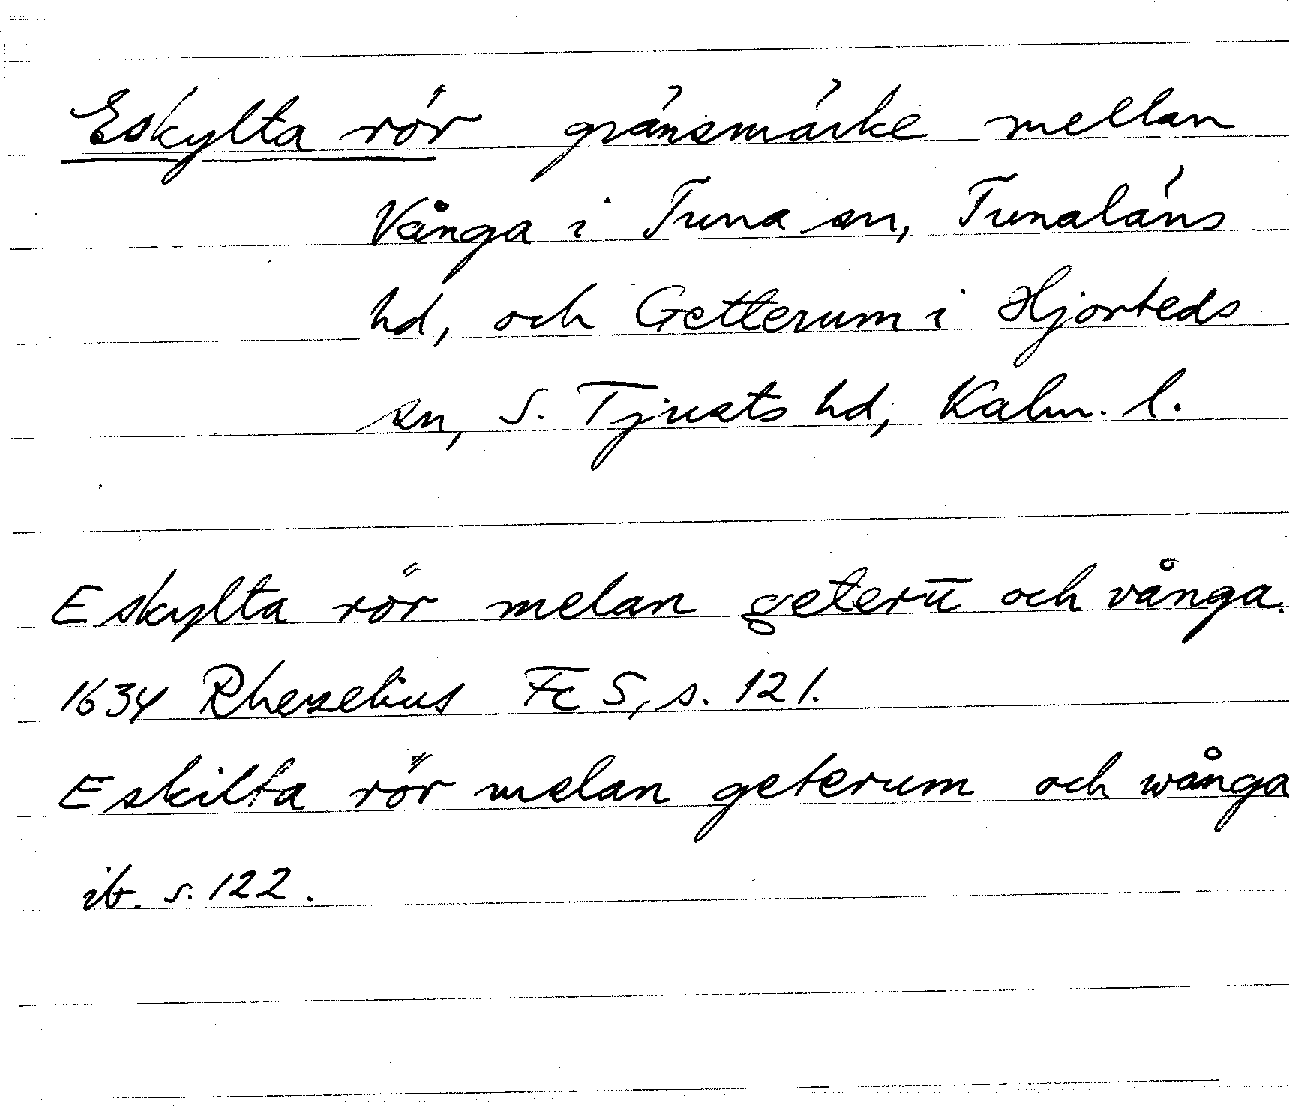 Eskylta rör gränsmärke mellan
Vånga i Tuna sn, Tunaläns
hd, och Getterum i Hjorteds
sn, S. Tjusts hd, Kalm. l.
Eskylta rör melan geterū och vånga.
1634 Rhezelius Fc 5, s. 121.
Eskilta rör melan geterum och wånga
ib. s. 122.